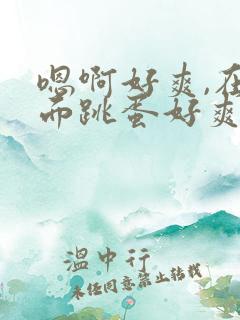 嗯啊好爽,在
布跳蛋好爽
温中行
未经同意禁止转载